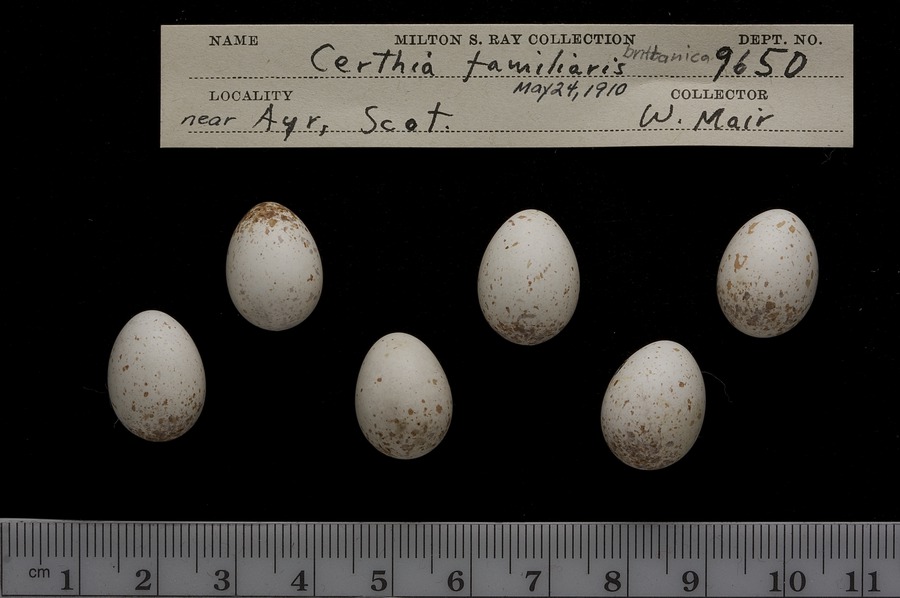 NAME MILTON S. RAY COLLECTION DEPT. NO.
Certhia familiaris brittanica 9650
LOCALITY May 24, 1910 COLLECTOR
near Ayr, Scot. W. Mair
cm 1 2 3 4 5 6 7 8 9 10 11